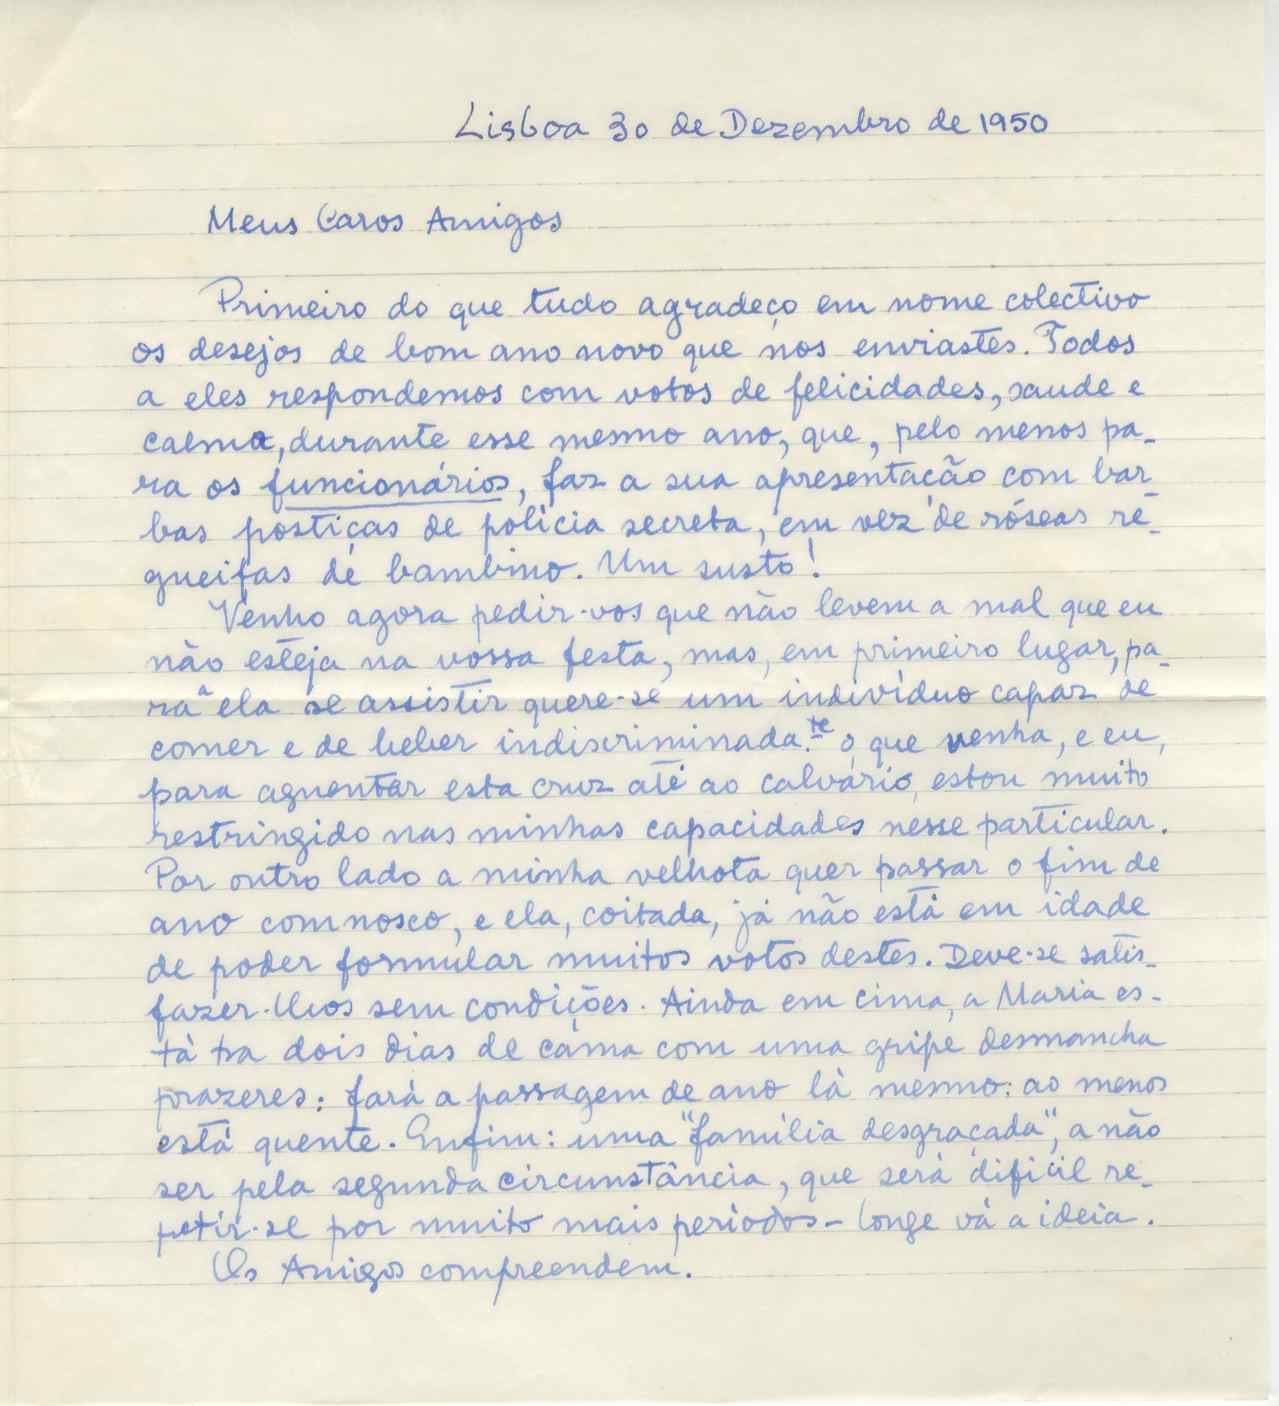 Lisboa 30 de Dezembro de 1950
Meus Caros Amigos
Primeiro do que tudo agradeço em nome colectivo
os desejos de bom ano novo que nos enviastes. Todos
a eles respondemos com votos de felicidades, saude e
calma, durante esse mesmo ano, que, pelo menos pa-
ra os funcionários, faz a sua apresentação com bar-
bas postiças de polícia secreta, em vez de róseas re-
gueifas de bambino. Um susto!
Venho agora pedir-vos que não levem a mal que eu
não esteja na vossa festa, mas, em primeiro lugar, pa-
ra a ela se assistir quere-se um indivíduo capaz de
comer e de beber indiscriminada.te o que venha, e eu,
para aguentar esta cruz até ao calvário, estou muito
restringido nas minhas capacidades nesse particular.
Por outro lado a minha velhota quer passar o fim de
ano comnosco, e ela, coitada, já não está em idade
de poder formular muitos votos destes. Deve-se satis-
fazer-lhos sem condições. Ainda em cima, a Maria es-
tá há dois dias de cama com uma gripe desmancha
prazeres: fará a passagem de ano lá mesmo: ao menos
está quente. Enfim: uma "família desgraçada", a não
ser pela segunda circunstância, que será difícil re-
petir-se por muito mais periodos - longe vá a ideia.
Os Amigos compreendem.